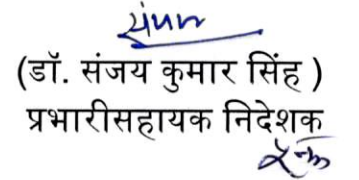 (डॉ. संजय कुमार सिंह )
प्रभारीसहायक निदेशक